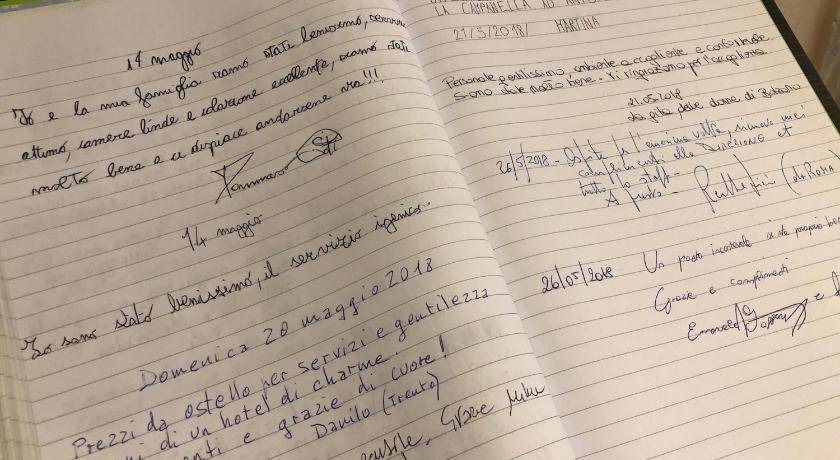 14 maggio
Io e la mia famiglia siamo stati benissimo, servizio
ottimo, camere linde e colazione eccellente, siamo stati
molto bene e ci dispiace andarsene via!!!
Tommaso
14 maggio
Io sono stato benissimo, il servizio igenico..
Domenica 20 maggio 2018
Prezzi da ostello per servizi e gentilezza
di un hotel di charme.
e grazie di cuore!
Danilo (Trento)
Grazie
LA CAMPANELLA AD
21/5/2018/ MARTINA
Personale gentilissimo, ambiente accogliente e confortevole.
Siamo state molto bene. Vi ringraziamo per l'accoglienza
21.05.2018
La gita delle donne di
26/5/2018 - Ospite per l'ennesima volta, rinnovo i miei
complimenti alla DIREZIONE et
tutto lo staff -
A presto -
(da ROMA)
26/05/2018 Un posto incantevole si sta proprio bene
Grazie e complimenti
Emanuela